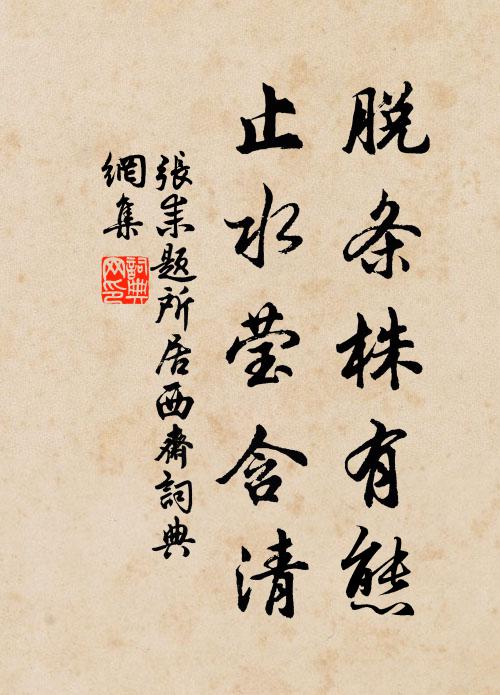 脱条株有態
止水莹含清
張耒題所居西齋詞典
網集
詞典
网印